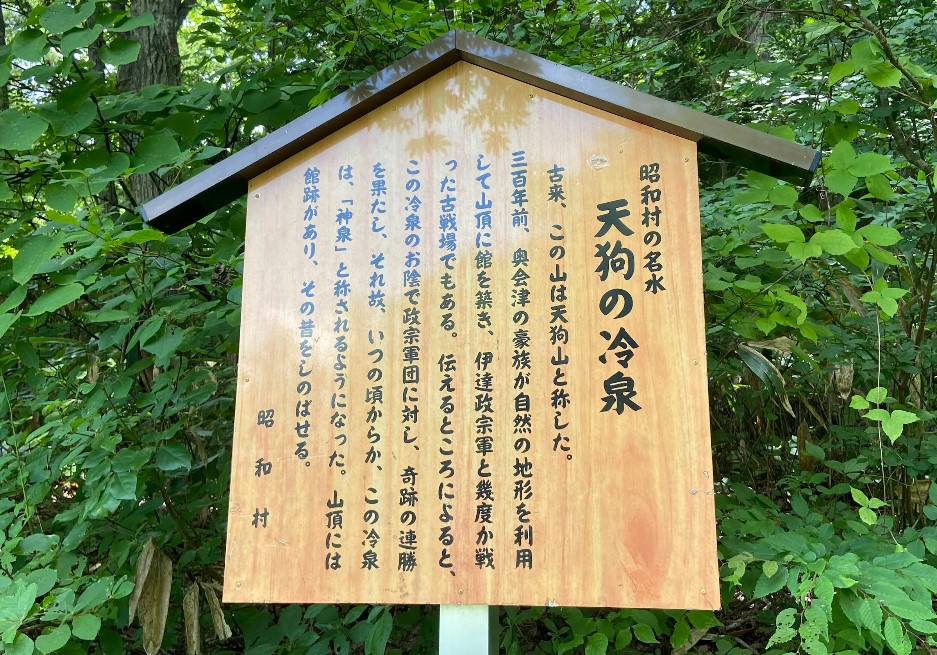 昭和村の名水
天狗の冷泉
古来、この山は天狗山と称した。
三百年前、奥会津の豪族が自然の地形を利用
して山頂に館を築き、伊達政宗軍と幾度か戦
った古戦場でもある。伝えるところによると、
この冷泉のお陰で政宗軍団に対し、奇跡の連勝
を果たし、それ故、いつの頃からか、この冷泉
は、「神泉」と称されるようになった。山頂には
館跡があり、その昔をしのばせる。
昭和村